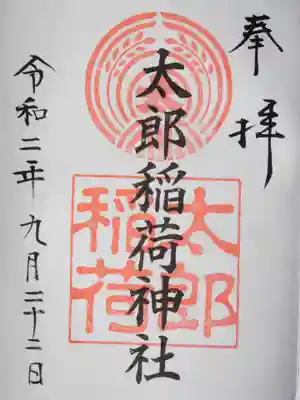 奉拝
太郎稲荷神社
太郎
稲荷
令和二年九月二十二日